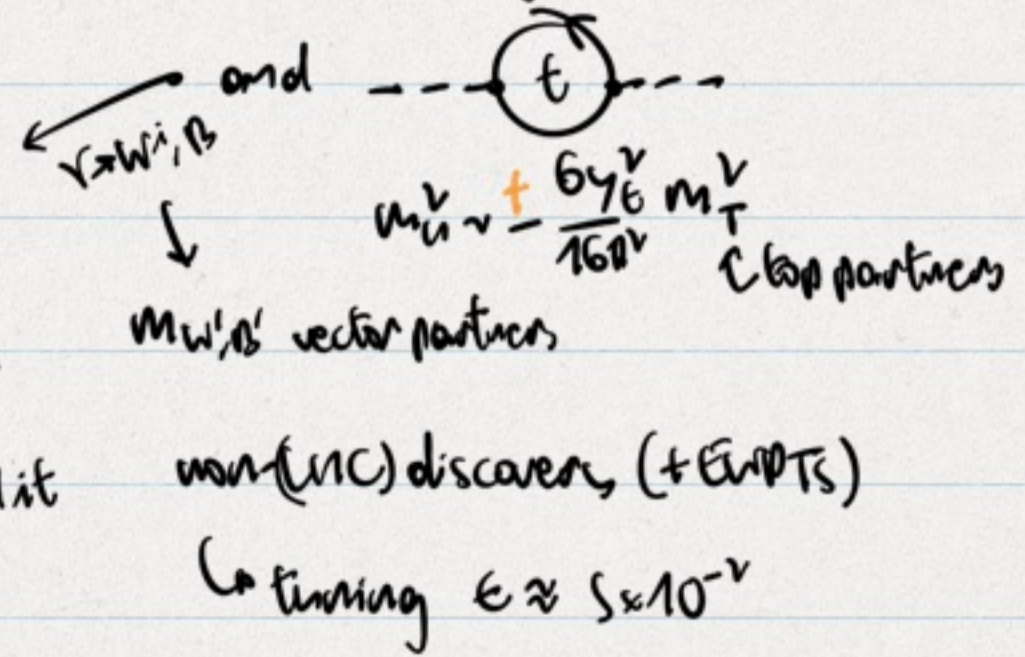 and
t
γ→Wⁱ, B
m_H² ~ ± 6y_t²/16π² m_T²
top partners
m_W',B' vector partners
it
non-(LHC) discovery (+ EWPTs)
↳ tuning ϵ ≈ 5×10⁻²